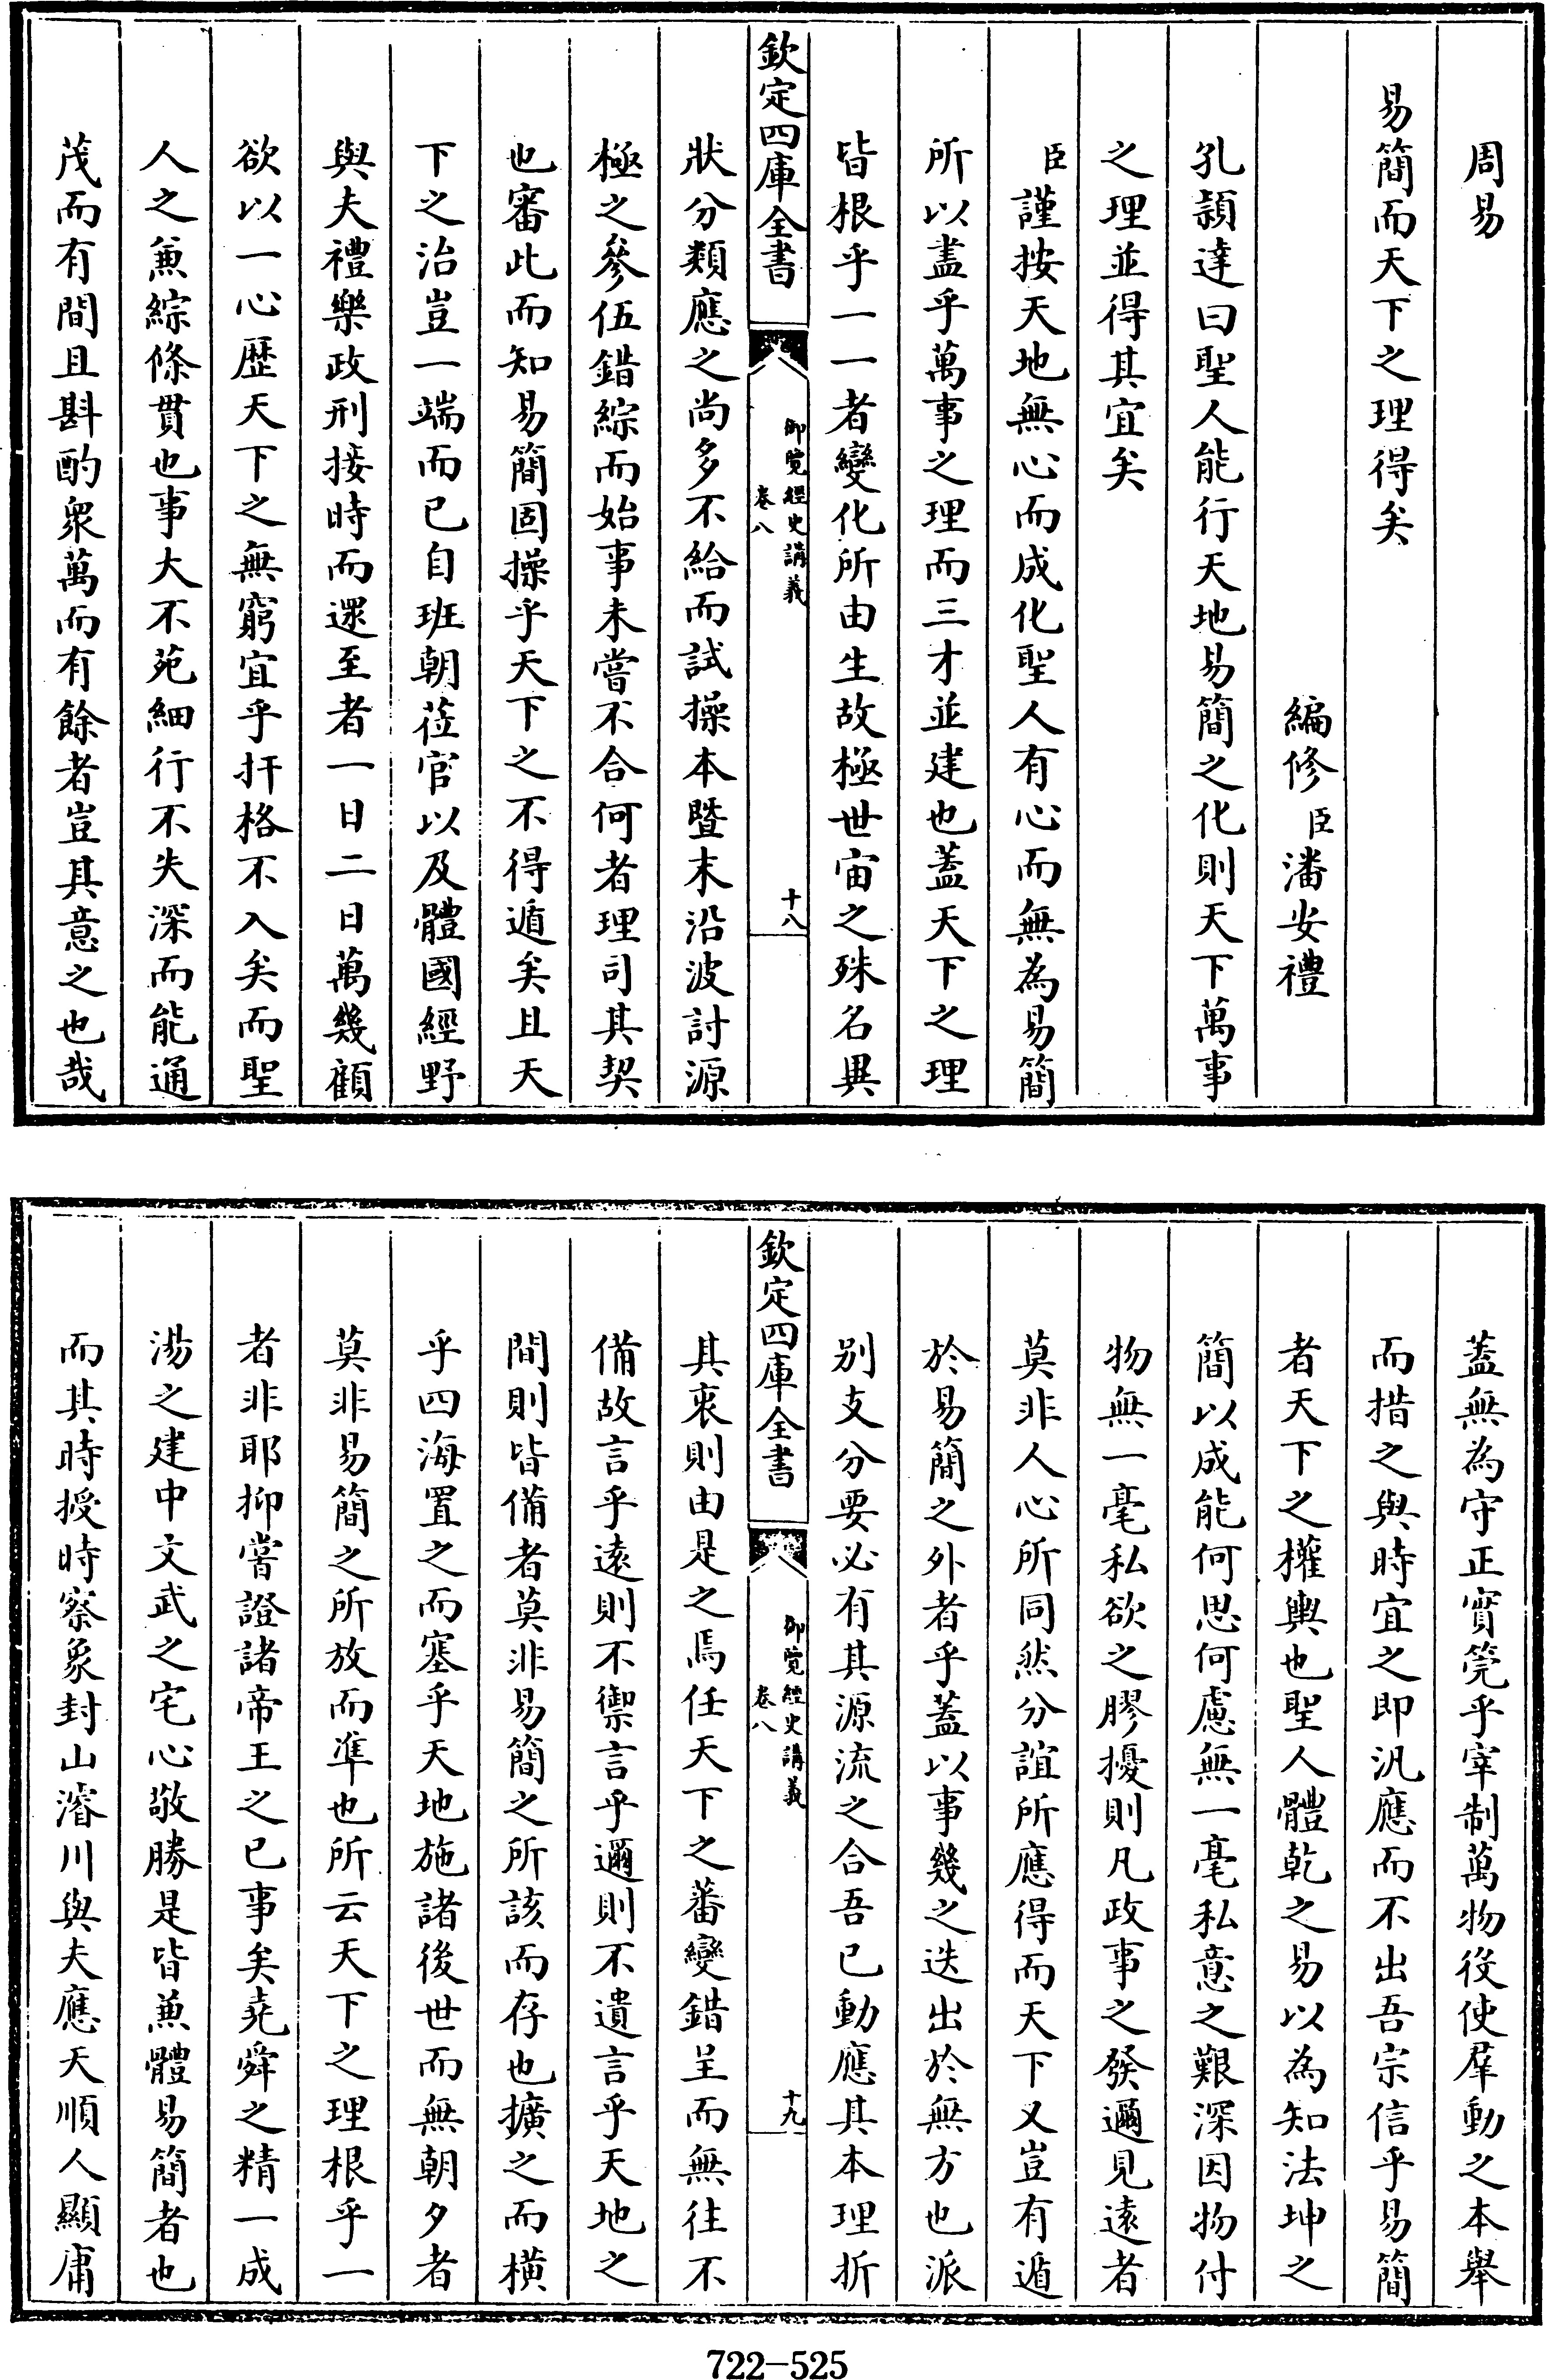 周易
易簡而天下之理得矣
編修臣潘安禮
孔頴達曰聖人能行天地易簡之化則天下萬事
之理並得其宜矣
臣謹按天地無心而成化聖人有心而無為易簡
所以盡乎萬事之理而三才並建也蓋天下之理
皆根乎一一者變化所由生故極世宙之殊名異
欽定四庫全書
御覽經史講義
卷八
十八
狀分類應之尚多不給而試操本暨末沿波討源
極之參伍錯綜而始事未嘗不合何者理司其契
也審此而知易簡固操乎天下之不得遁矣且天
下之治豈一端而已自班朝莅官以及體國經野
與夫禮樂政刑接時而遝至者一日二日萬幾顧
欲以一心歴天下之無窮宜乎扞格不入矣而聖
人之兼綜條貫也事大不苑細行不失深而能通
茂而有間且斟酌衆萬而有餘者豈其意之也哉
蓋無為守正實筦乎宰制萬物役使羣動之本舉
而措之與時宜之即汎應而不出吾宗信乎易簡
者天下之權輿也聖人體乾之易以為知法坤之
簡以成能何思何慮無一毫私意之艱深因物付
物無一毫私欲之膠擾則凡政事之發邇見遠者
莫非人心所同然分誼所應得而天下又豈有遁
於易簡之外者乎蓋以事幾之迭出於無方也派
别支分要必有其源流之合吾已動應其本理折
欽定四庫全書
御覽經史講義
卷八
十九
其衷則由是之焉任天下之蕃變錯呈而無往不
備故言乎遠則不禦言乎邇則不遺言乎天地之
間則皆備者莫非易簡之所該而存也擴之而橫
乎四海置之而塞乎天地施諸後世而無朝夕者
莫非易簡之所放而準也所云天下之理根乎一
者非耶抑嘗證諸帝王之已事矣堯舜之精一成
湯之建中文武之宅心敬勝是皆兼體易簡者也
而其時授時察象封山濬川與夫應天順人顯庸
722-525